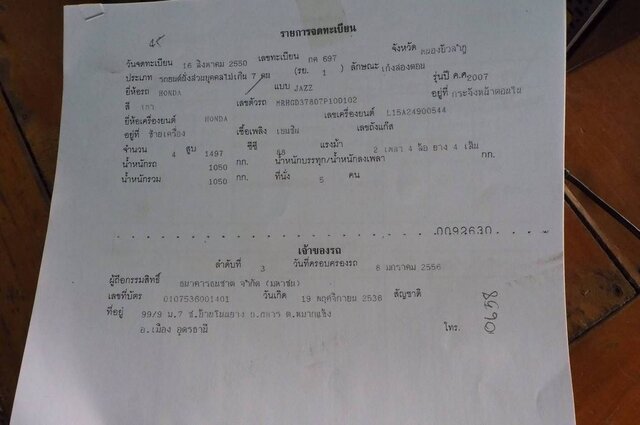 รายการจดทะเบียน
วันจดทะเบียน 16 สิงหาคม 2550 เลขทะเบียน กค 697 จังหวัด หนองบัวลำภู
ประเภท รถยนต์นั่งส่วนบุคคลไม่เกิน 7 คน (รย. 1 ) ลักษณะ เก๋งสองตอน
ยี่ห้อรถ HONDA แบบ JAZZ รุ่นปี ค.ศ 2007
สี เทา เลขตัวรถ MRHGD37807P100102 อยู่ที่ กระจังหน้าตอนใน
ยี่ห้อเครื่องยนต์ HONDA เลขเครื่องยนต์ L15A24900544
อยู่ที่ ซ้ายเครื่อง เชื้อเพลิง เบนซิน เลขถังแก๊ส
จำนวน 4 สูบ 1497 ซีซี 88 แรงม้า 2 เพลา 4 ล้อ ยาง 4 เส้น
น้ำหนักรถ 1050 กก. น้ำหนักบรรทุก/น้ำหนักลงเพลา กก.
น้ำหนักรวม 1050 กก. ที่นั่ง 5 คน
0092630
เจ้าของรถ
ลำดับที่ 3 วันที่ครอบครองรถ 8 มกราคม 2556
ผู้ถือกรรมสิทธิ์ ธนาคารธนชาต จำกัด (มหาชน)
เลขที่บัตร 0107536001401 วันเกิด 19 พฤศจิกายน 2536 สัญชาติ
ที่อยู่ 99/9 ม.7 ต.หมากแข้ง
อ.เมือง อุดรธานี โทร.
0658